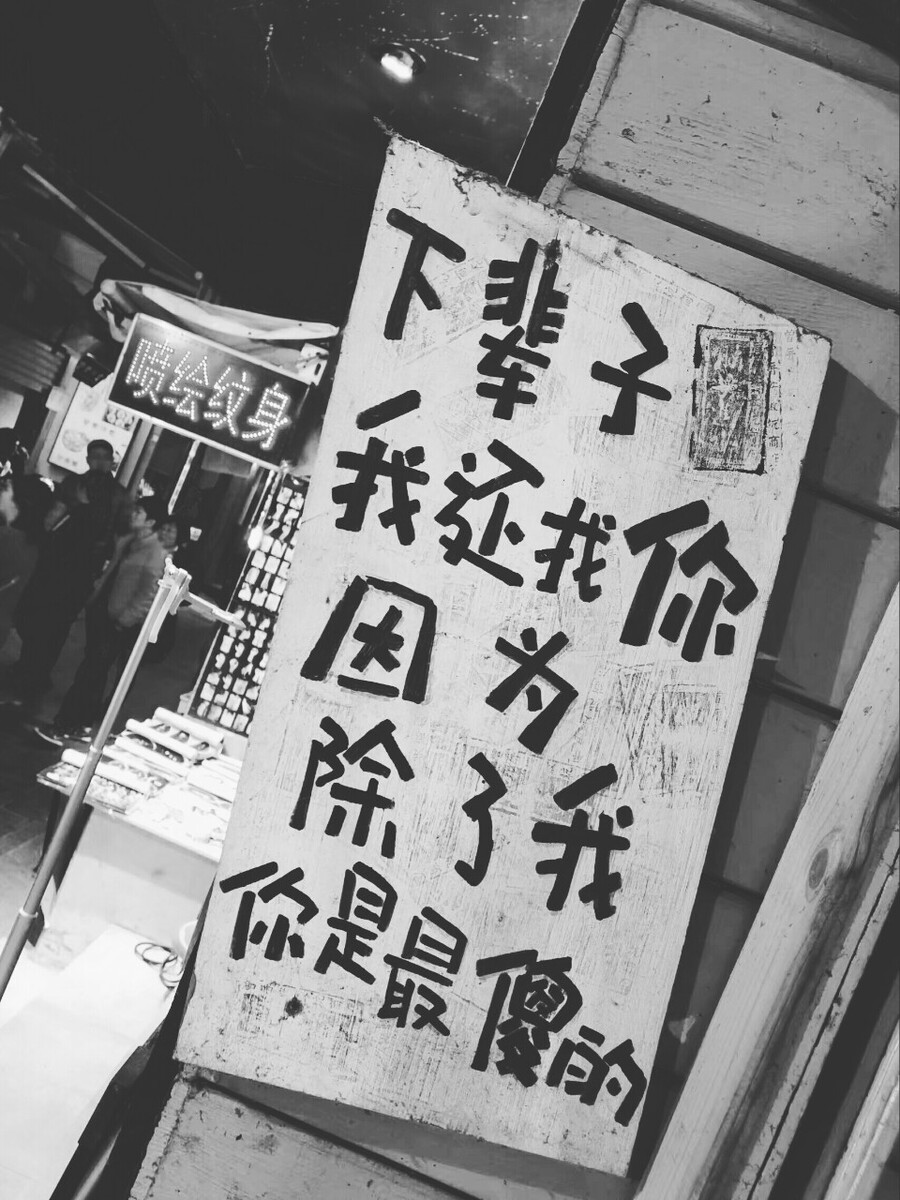 下辈子
我还找你
因为
除了我
你是最傻的
喷绘纹身